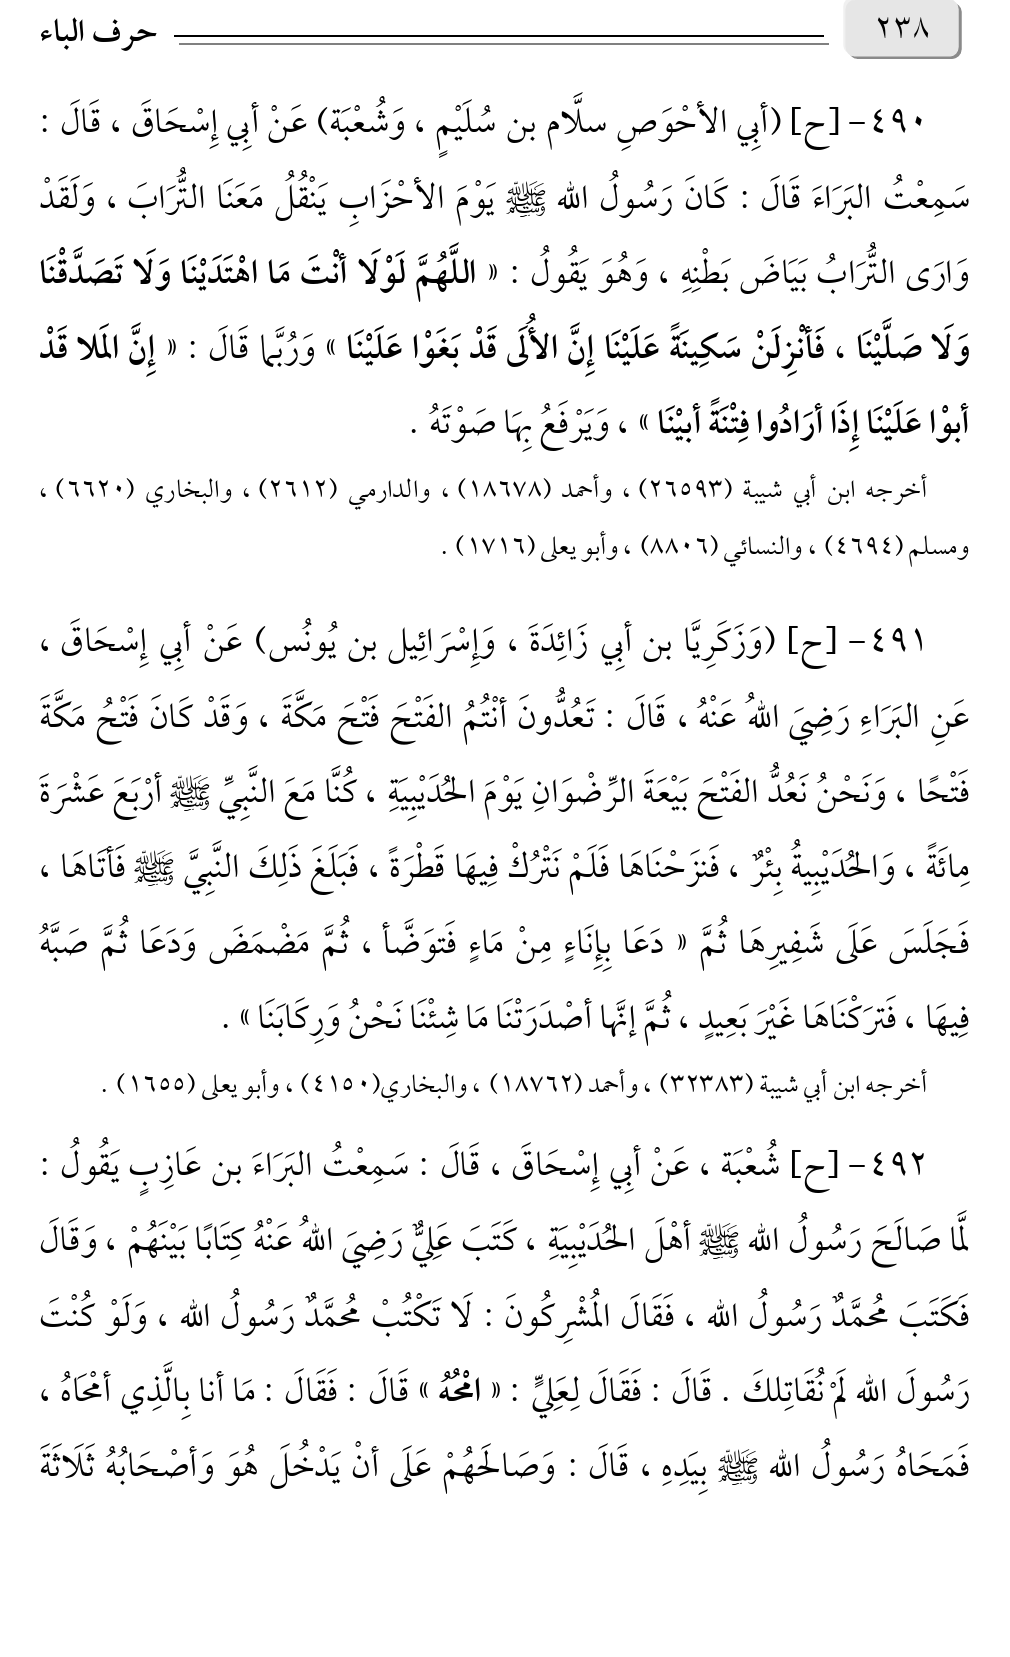 ٢٣٨
حرف الباء
٤٩٠ – [ح] (أَبِي الأحْوَصِ سلَّام بن سُلَيْمٍ ، وَشُعْبَة) عَنْ أَبِي إِسْحَاقَ ، قَالَ :
سَمِعْتُ البَرَاءَ قَالَ : كَانَ رَسُولُ الله ﷺ يَوْمَ الأحْزَابِ يَنْقُلُ مَعَنَا التُّرَابَ ، وَلَقَدْ
وَارَى التُّرَابُ بَيَاضَ بَطْنِهِ ، وَهُوَ يَقُولُ : « اللَّهُمَّ لَوْلَا أنْتَ مَا اهْتَدَيْنَا وَلَا تَصَدَّقْنَا
وَلَا صَلَّيْنَا ، فَأنْزِلَنْ سَكِينَةً عَلَيْنَا إِنَّ الأُلَى قَدْ بَغَوْا عَلَيْنَا » وَرُبَّما قَالَ : « إِنَّ المَلا قَدْ
أبوْا عَلَيْنَا إِذَا أرَادُوا فِتْنَةً أبيْنَا » ، وَيَرْفَعُ بِهَا صَوْتَهُ .
أخرجه ابن أبي شيبة (٢٦٥٩٣) ، وأحمد (١٨٦٧٨) ، والدارمي (٢٦١٢) ، والبخاري (٦٦٢٠) ،
ومسلم (٤٦٩٤) ، والنسائي (٨٨٠٦) ، وأبو يعلى (١٧١٦) .
٤٩١ – [ح] (وَزَكَرِيَّا بن أبِي زَائِدَةَ ، وَإِسْرَائِيل بن يُونُس) عَنْ أبِي إِسْحَاقَ ،
عَنِ البَرَاءِ رَضِيَ اللهُ عَنْهُ ، قَالَ : تَعُدُّونَ أنْتُمُ الفَتْحَ فَتْحَ مَكَّةَ ، وَقَدْ كَانَ فَتْحُ مَكَّةَ
فَتْحًا ، وَنَحْنُ نَعُدُّ الفَتْحَ بَيْعَةَ الرِّضْوَانِ يَوْمَ الحُدَيْبِيَةِ ، كُنَّا مَعَ النَّبِيِّ ﷺ أرْبَعَ عَشْرَةَ
مِائَةً ، وَالحُدَيْبِيةُ بِئْرٌ ، فَنزَحْنَاهَا فَلَمْ نَتْرُكْ فِيهَا قَطْرَةً ، فَبَلَغَ ذَلِكَ النَّبِيَّ ﷺ فَأتَاهَا ،
فَجَلَسَ عَلَى شَفِيرِهَا ثُمَّ « دَعَا بِإِنَاءٍ مِنْ مَاءٍ فَتوَضَّأ ، ثُمَّ مَضْمَضَ وَدَعَا ثُمَّ صَبَّهُ
فِيهَا ، فَترَكْنَاهَا غَيْرَ بَعِيدٍ ، ثُمَّ إنَّها أصْدَرَتْنَا مَا شِئْنَا نَحْنُ وَرِكَابَنَا » .
أخرجه ابن أبي شيبة (٣٢٣٨٣) ، وأحمد (١٨٧٦٢) ، والبخاري(٤١٥٠) ، وأبو يعلى (١٦٥٥) .
٤٩٢ – [ح] شُعْبَة ، عَنْ أبِي إِسْحَاقَ ، قَالَ : سَمِعْتُ البَرَاءَ بن عَازِبٍ يَقُولُ :
لَمَّا صَالَحَ رَسُولُ الله ﷺ أهْلَ الحُدَيْبِيَةِ ، كَتَبَ عَلِيٌّ رَضِيَ اللهُ عَنْهُ كِتَابًا بَيْنَهُمْ ، وَقَالَ
فَكَتَبَ مُحَمَّدٌ رَسُولُ الله ، فَقَالَ المُشْرِكُونَ : لَا تَكْتُبْ مُحَمَّدٌ رَسُولُ الله ، وَلَوْ كُنْتَ
رَسُولَ الله لَمْ نُقَاتِلكَ . قَالَ : فَقَالَ لِعَلِيٍّ : « امْحُهُ » قَالَ : فَقَالَ : مَا أنا بِالَّذِي أمْحَاهُ ،
فَمَحَاهُ رَسُولُ الله ﷺ بِيَدِهِ ، قَالَ : وَصَالَحَهُمْ عَلَى أنْ يَدْخُلَ هُوَ وَأصْحَابُهُ ثَلَاثَةَ